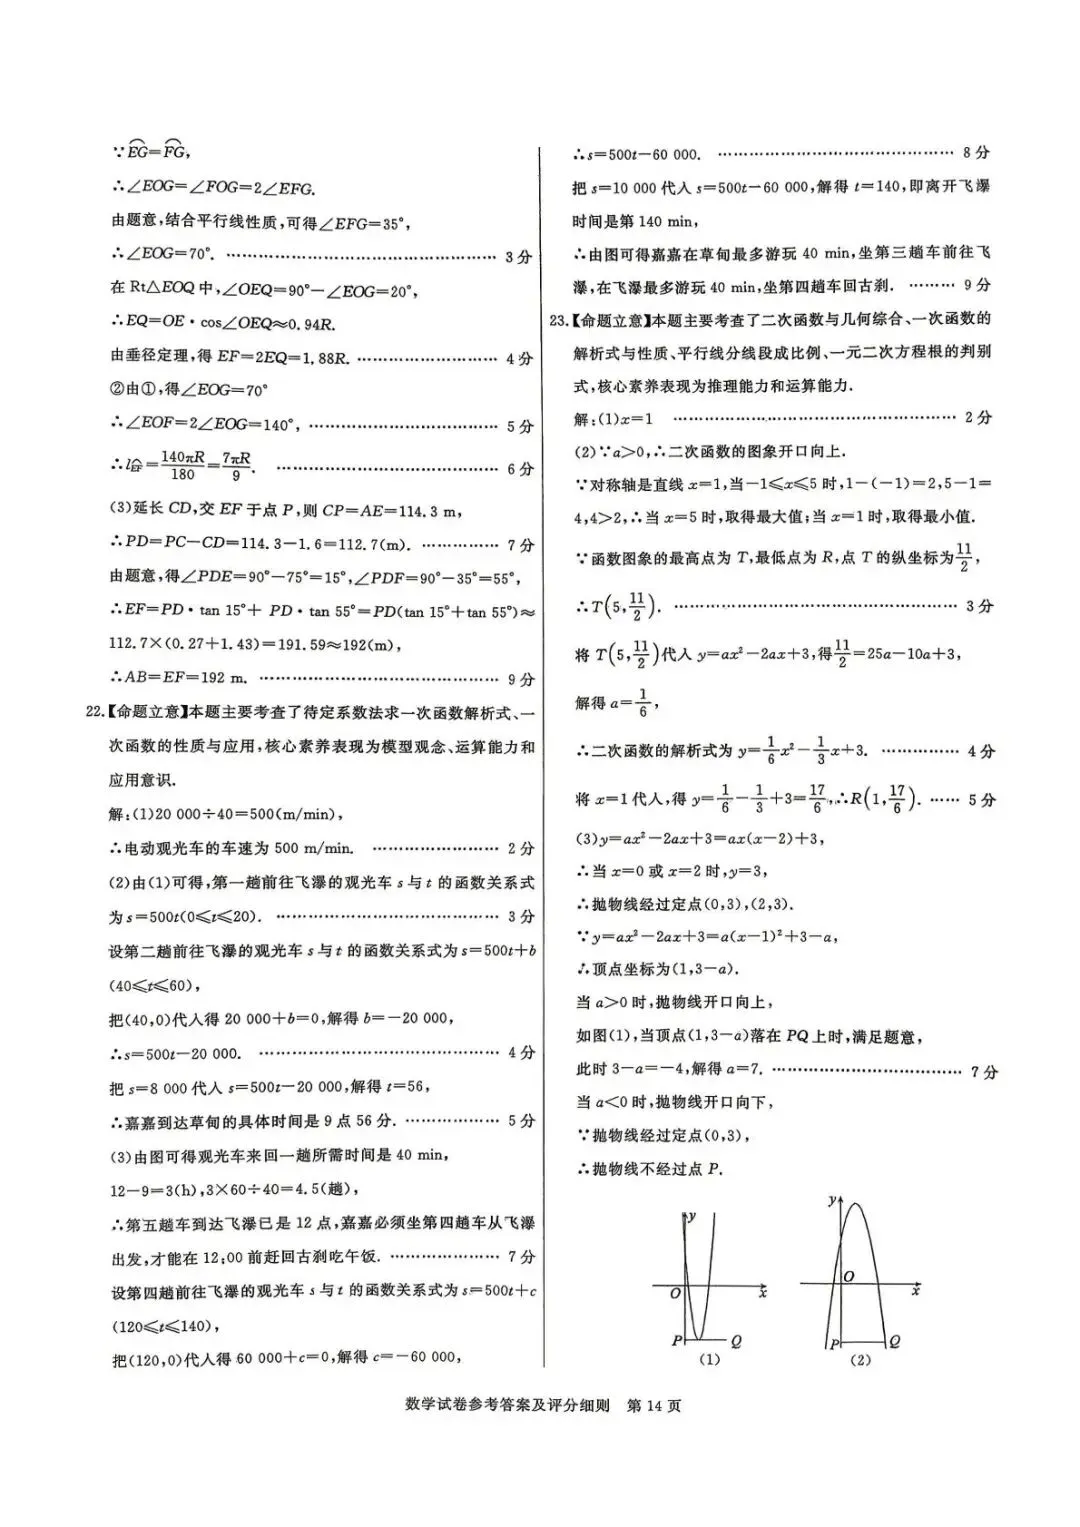 ∵EG=FG,
∴∠EOG=∠FOG=2∠EFG.
由题意,结合平行线性质,可得∠EFG=35°,
∴∠EOG=70°. …………………………………………… 3 分
在 Rt△EOQ 中,∠OEQ=90°-∠EOG=20°,
∴EQ=OE·cos∠OEQ≈0.94R.
由垂径定理,得 EF=2EQ=1.88R. ……………………… 4 分
②由①,得∠EOG=70°
∴∠EOF=2∠EOG=140°, ……………………………… 5 分
∴l=140πR/180=7πR/9. …………………………………… 6 分
(3)延长 CD,交 EF 于点 P,则 CP=AE=114.3 m,
∴PD=PC-CD=114.3-1.6=112.7(m). …………… 7 分
由题意,得∠PDE=90°-75°=15°,∠PDF=90°-35°=55°,
∴EF=PD·tan 15°+ PD·tan 55°=PD(tan 15°+tan 55°)≈
112.7×(0.27+1.43)=191.59≈192(m),
∴AB=EF=192 m. ……………………………………… 9 分
22.【命题立意】本题主要考查了待定系数法求一次函数解析式、一
次函数的性质与应用,核心素养表现为模型观念、运算能力和
应用意识.
解:(1)20 000÷40=500(m/min),
∴电动观光车的车速为 500 m/min. …………………… 2 分
(2)由(1)可得,第一趟前往飞瀑的观光车 s 与 t 的函数关系式
为 s=500t(0≤t≤20). …………………………………… 3 分
设第二趟前往飞瀑的观光车 s 与 t 的函数关系式为 s=500t+b
(40≤t≤60),
把(40,0)代入得 20 000+b=0,解得 b=-20 000,
∴s=500t-20 000. ……………………………………… 4 分
把 s=8 000 代入 s=500t-20 000,解得 t=56,
∴嘉嘉到达草甸的具体时间是 9 点 56 分. ……………… 5 分
(3)由图可得观光车来回一趟所需时间是 40 min,
12-9=3(h),3×60÷40=4.5(趟),
∴第五趟车到达飞瀑已是 12 点,嘉嘉必须坐第四趟车从飞瀑
出发,才能在 12:00 前赶回古刹吃午饭. ………………… 7 分
设第四趟前往飞瀑的观光车 s 与 t 的函数关系式为 s=500t+c
(120≤t≤140),
把(120,0)代入得 60 000+c=0,解得 c=-60 000,
∴s=500t-60 000. ……………………………………… 8 分
把 s=10 000 代入 s=500t-60 000,解得 t=140,即离开飞瀑
时间是第 140 min,
∴由图可得嘉嘉在草甸最多游玩 40 min,坐第三趟车前往飞
瀑,在飞瀑最多游玩 40 min,坐第四趟车回古刹. ……… 9 分
23.【命题立意】本题主要考查了二次函数与几何综合、一次函数的
解析式与性质、平行线分线段成比例、一元二次方程根的判别
式,核心素养表现为推理能力和运算能力.
解:(1)x=1 ……………………………………………… 2 分
(2)∵a>0,∴二次函数的图象开口向上.
∵对称轴是直线 x=1,当-1≤x≤5 时,1-(-1)=2,5-1=
4,4>2,∴当 x=5 时,取得最大值;当 x=1 时,取得最小值.
∵函数图象的最高点为 T,最低点为 R,点 T 的纵坐标为11/2,
∴T(5,11/2). ……………………………………………… 3 分
将 T(5,11/2)代入 y=ax²-2ax+3,得11/2=25a-10a+3,
解得 a=1/6,
∴二次函数的解析式为 y=1/6x²-1/3x+3. …………… 4 分
将 x=1 代入,得 y=1/6-1/3+3=17/6,∴R(1,17/6). …… 5 分
(3)y=ax²-2ax+3=ax(x-2)+3,
∴当 x=0 或 x=2 时,y=3,
∴抛物线经过定点(0,3),(2,3).
∵y=ax²-2ax+3=a(x-1)²+3-a,
∴顶点坐标为(1,3-a).
当 a>0 时,抛物线开口向上,
如图(1),当顶点(1,3-a)落在 PQ 上时,满足题意,
此时 3-a=-4,解得 a=7. ……………………………… 7 分
当 a<0 时,抛物线开口向下,
∵抛物线经过定点(0,3),
∴抛物线不经过点 P.
y
O
x
P
Q
(1)
y
O
x
P
Q
(2)
数学试卷参考答案及评分细则 第 14 页